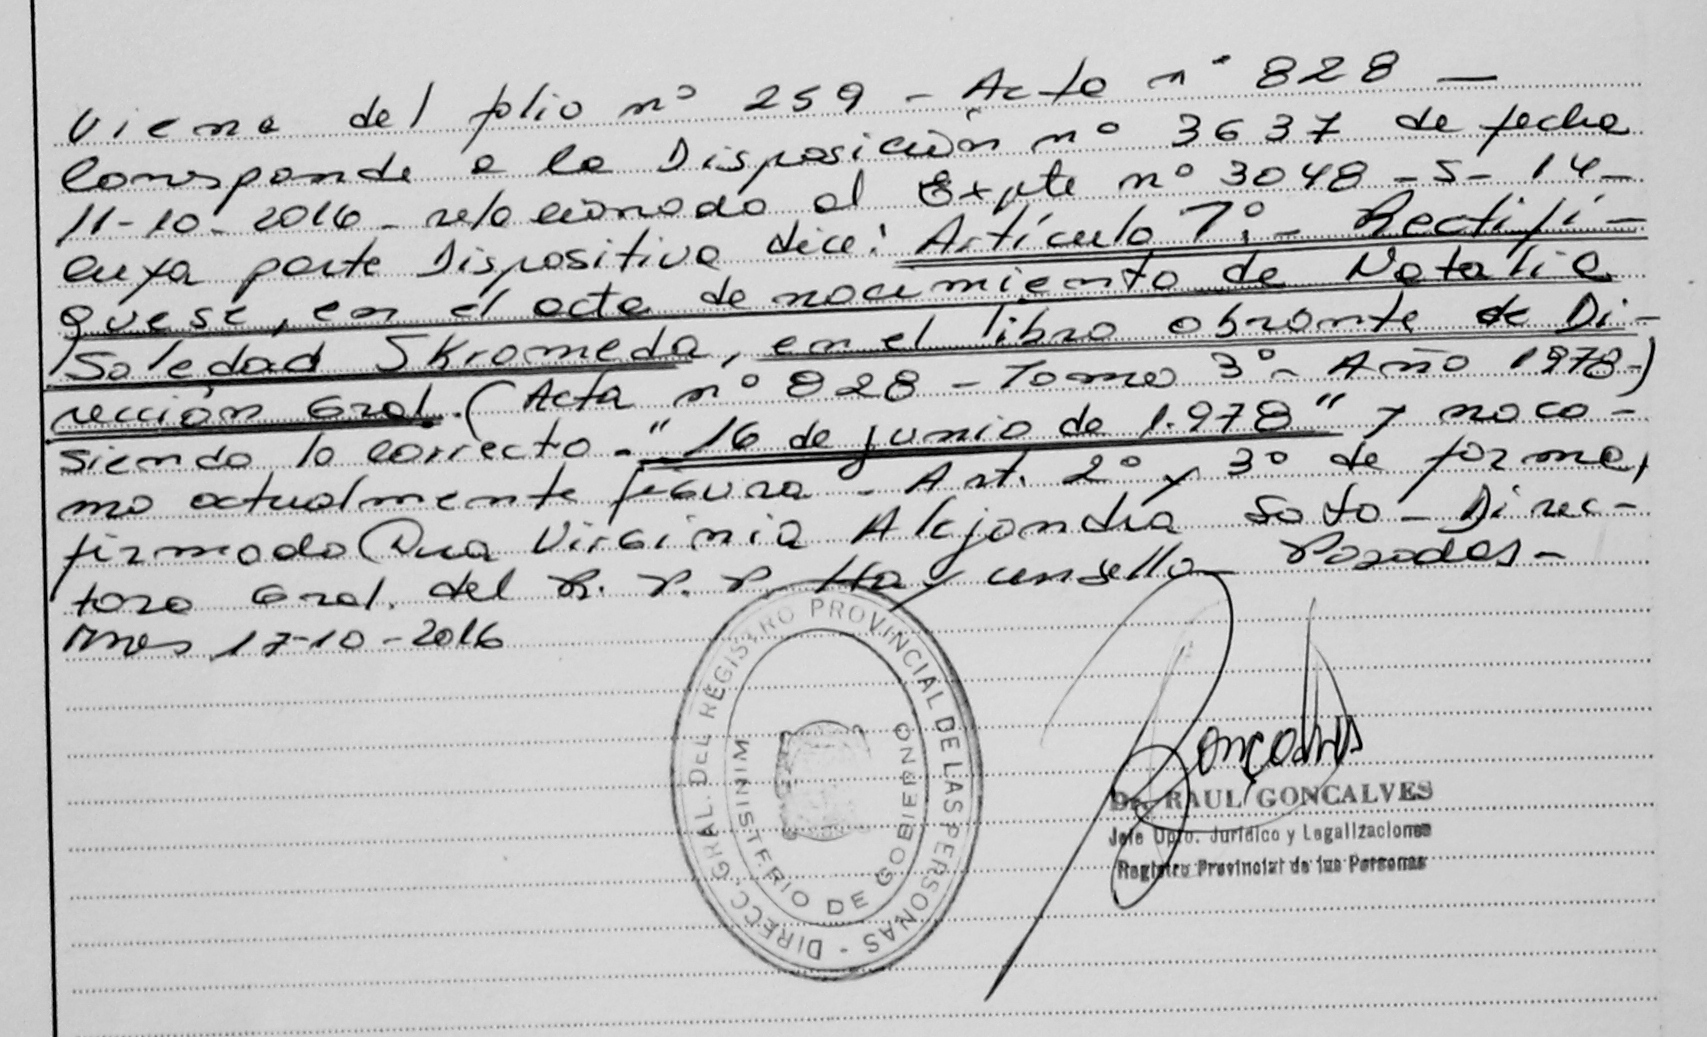 Viene del folio nº 259 - Acta nº 828 —
Corresponde a la Disposición nº 3637 de fecha
11-10-2016- relacionado al Expte nº 3048-S-14-
cuya parte Dispositiva dice: Artículo 1º:- Rectifí-
quese, en el acta de nacimiento de Natalia
Soledad Skromeda, en el libro obrante de Di-
rección Gral. (Acta nº 828 - Tomo 3º- Año 1978-)
siendo lo correcto - "16 de junio de 1.978" y no co-
mo actualmente figura - Art. 2º y 3º de forma,
firmado Dra Virginia Alejandra Soto - Direc-
tora Gral. del R. P. P. Hay un sello - Posadas-
Mnes 17-10-2016
DIRECC. GRAL. DEL REGISTRO PROVINCIAL DE LAS PERSONAS -
MINISTERIO DE GOBIERNO
Goncalves
Dr. RAUL GONCALVES
Jefe Dpto. Jurídico y Legalizaciones
Registro Provincial de las Personas